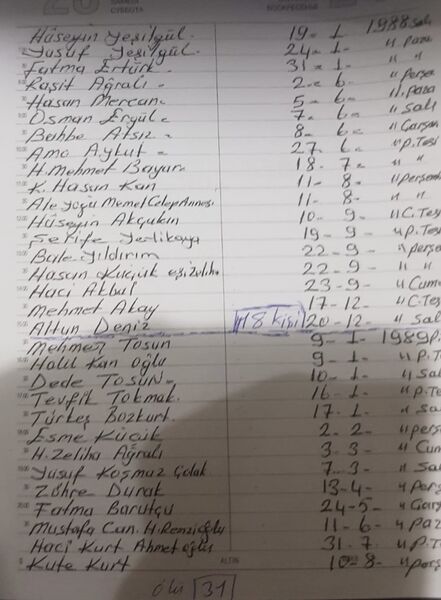 SUBOTA
CУББOTA
ВОСКРЕСЕНЬЕ
Hüseyin Yeşilgül. 19- 1- 1988 Salı
Yusuf Yeşilgül. 24- 1- " Paza
Fatma Ertürk. 31- 1- " "
Raşit Ağralı- 2- 6- " Perşe
Hasan Mercan. 5- 6- " Paza
Osman Ergül. 7- 6- " Salı
Bahbe Atsız. 8- 6- " Çarşan
Amo Aykut. 27. 6- " P.Tesi
H. Mehmet Bayar. 18. 7- " "
K. Hasan Kan 11- 8- " Perşemb
Ale yoğu Memet Celep Annesi 11- 8- " "
Hüseyin Akçakın 10- 9- " C.Tesi
Şerife Yerlikaya 19- 9- " P.Tesi
Bule Yıldırım 22- 9- " Perşe
Hasan Küçük eşi Zeliha 22- 9- " "
Haci Akbul 23- 9- " Cuma
Mehmet Akay 17- 12- " C-Tes
Altun Deniz 18 kişi 20- 12- " Salı
Mehmet Tosun 9- 1- 1989 P.
Halil Kan oğlu 9- 1- " P.T
Dede Tosun- 10- 1- " Salı
Tevfik Tokmak. 16- 1- " P.T
Türkeş Bozkurt. 17- 1- " Sal
Esme Küçük 2- 2- " Perş
H. Zeliha Ağralı 3- 3- " Cum
Yusuf Koşmaz Çolak 7- 3- " Sal
Zöhre Durak 13-4- " Perş
Fatma Barutçu 24-5- " Çarş
Mustafa Can. H. Remzioğlu 11- 6- " Paz
Haci Kurt Ahmet oğlu 31- 7- " P.T
Kute Kurt 10- 8- " Perş
ALTIN
ölü 31